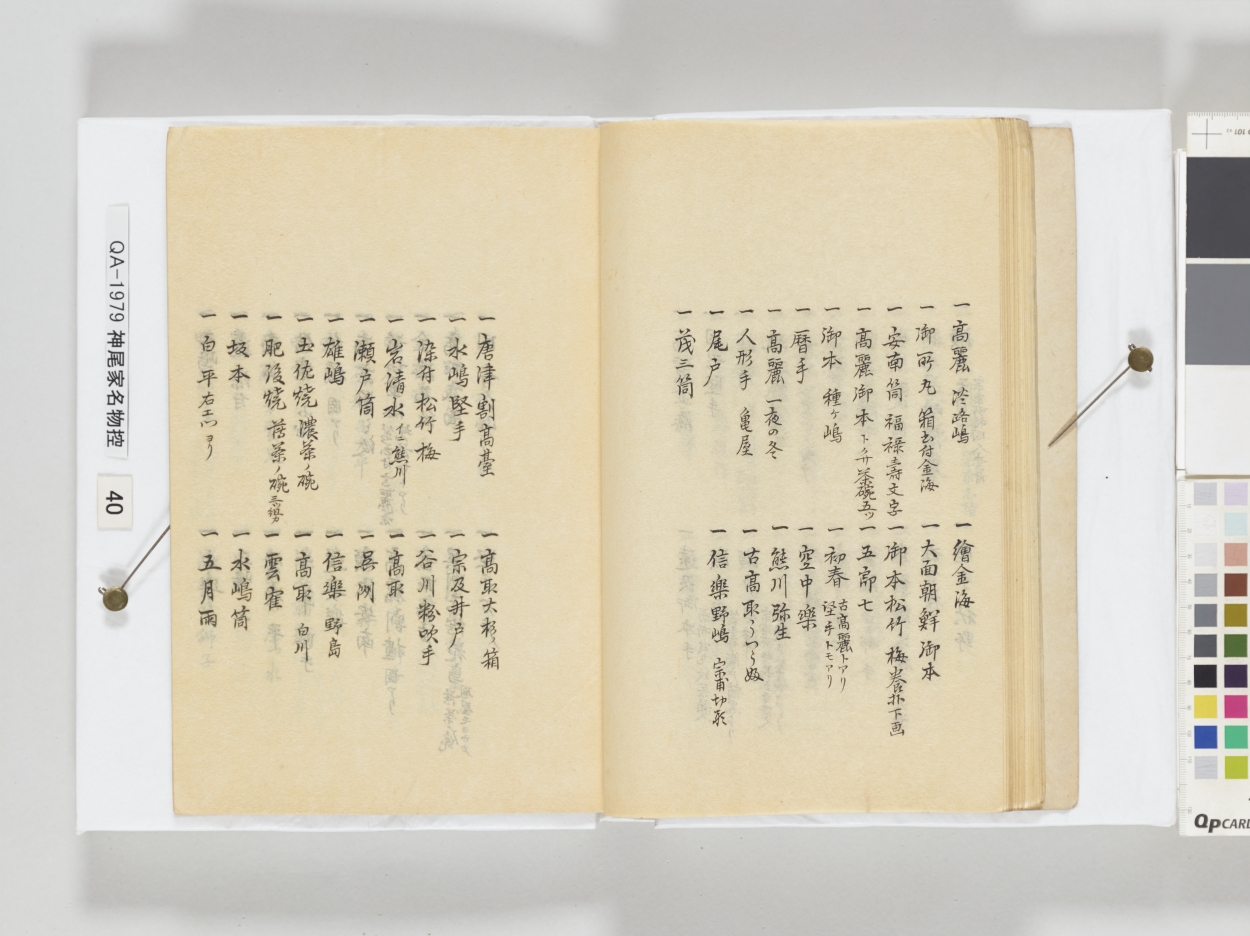 一 高麗 淡路嶋
一 御所丸 箱書付金海
一 安南筒 福禄壽文字
一 高麗御本 茶碗五ツ
一 御本 種ヶ嶋
一 暦手
一 高麗 一夜の冬
一 人形手 亀屋
一 尾戸
一 茂三筒
一 繪金海
一 大面朝鮮御本
一 御本松竹梅 下画
一 五郎七
一 初春 古高麗トアリ
堅手トモアリ
一 空中樂
一 熊川弥生
一 古高取
一 信樂野嶋 宗甫切形
一 唐津割高臺
一 水嶋堅手
一 染付松竹梅
一 岩清水 熊川
一 瀬戸筒
一 雄嶋
一 玉佐焼濃茶ノ碗
一 肥後焼薄茶ノ碗
一 坂本
一 白平
一 高取大 箱
一 宗及井戸
一 谷川粉吹手
一 高取
一 呉州
一 信樂野島
一 高取 白川
一 雲在
一 水嶋筒
一 五月雨
QA-1979 神尾家名物控
40
QPCARD